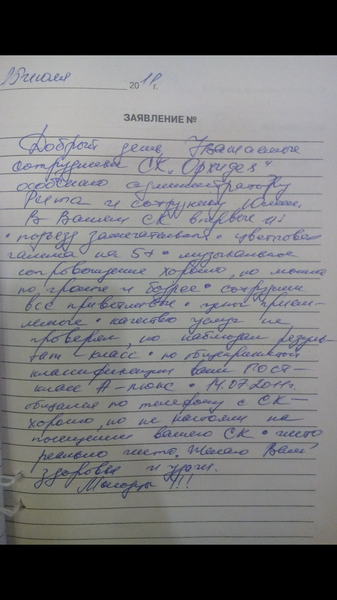 15 июля 2011 г.
ЗАЯВЛЕНИЕ №
Добрый день, Уважаемые
сотрудники СК „Орхидея“
особенно администратору
Рита и сотруднику Юлии.
В Вашем СК впервые
• подъезд замечательный • цветовая
гамма на 5+ • музыкальное
сопровождение хорошо, но можно
по громче и бодрее • сотрудники
все приветливые • цены прием-
лемые • качество услуг не
проверял, но наблюдал резуль-
тат класс • по общепринятой
классификации вами ГОСТ-
класс А-плюс • 14.07.2011г.
общался по телефону с СК-
хорошо, но не настояли на
посещении вашего СК • чисто
реально чисто. Желаю Вам
здоровья и удачи.
Молодцы !!!